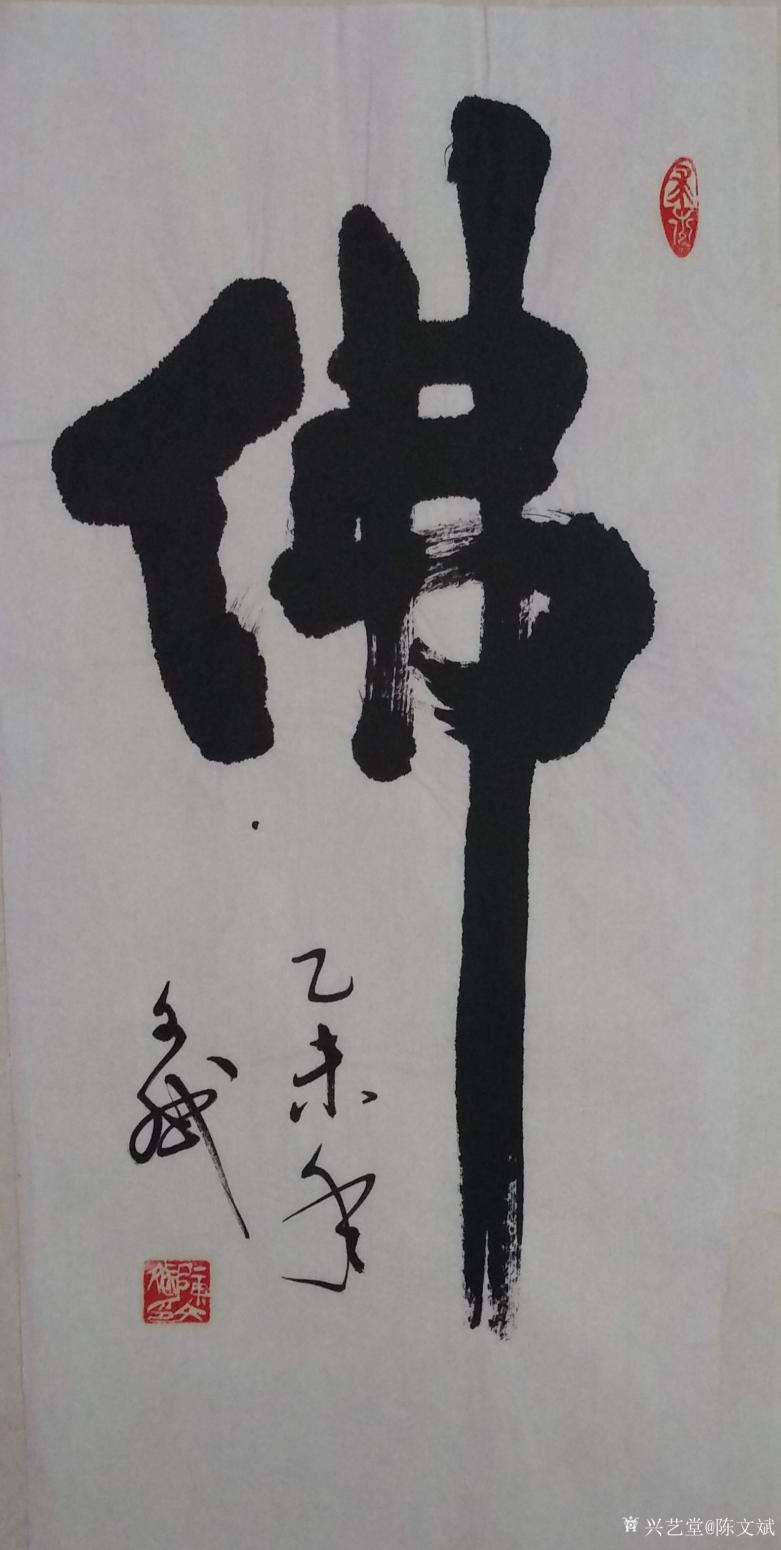 佛
乙未年
文斌
陈文斌印
兴艺堂@陈文斌